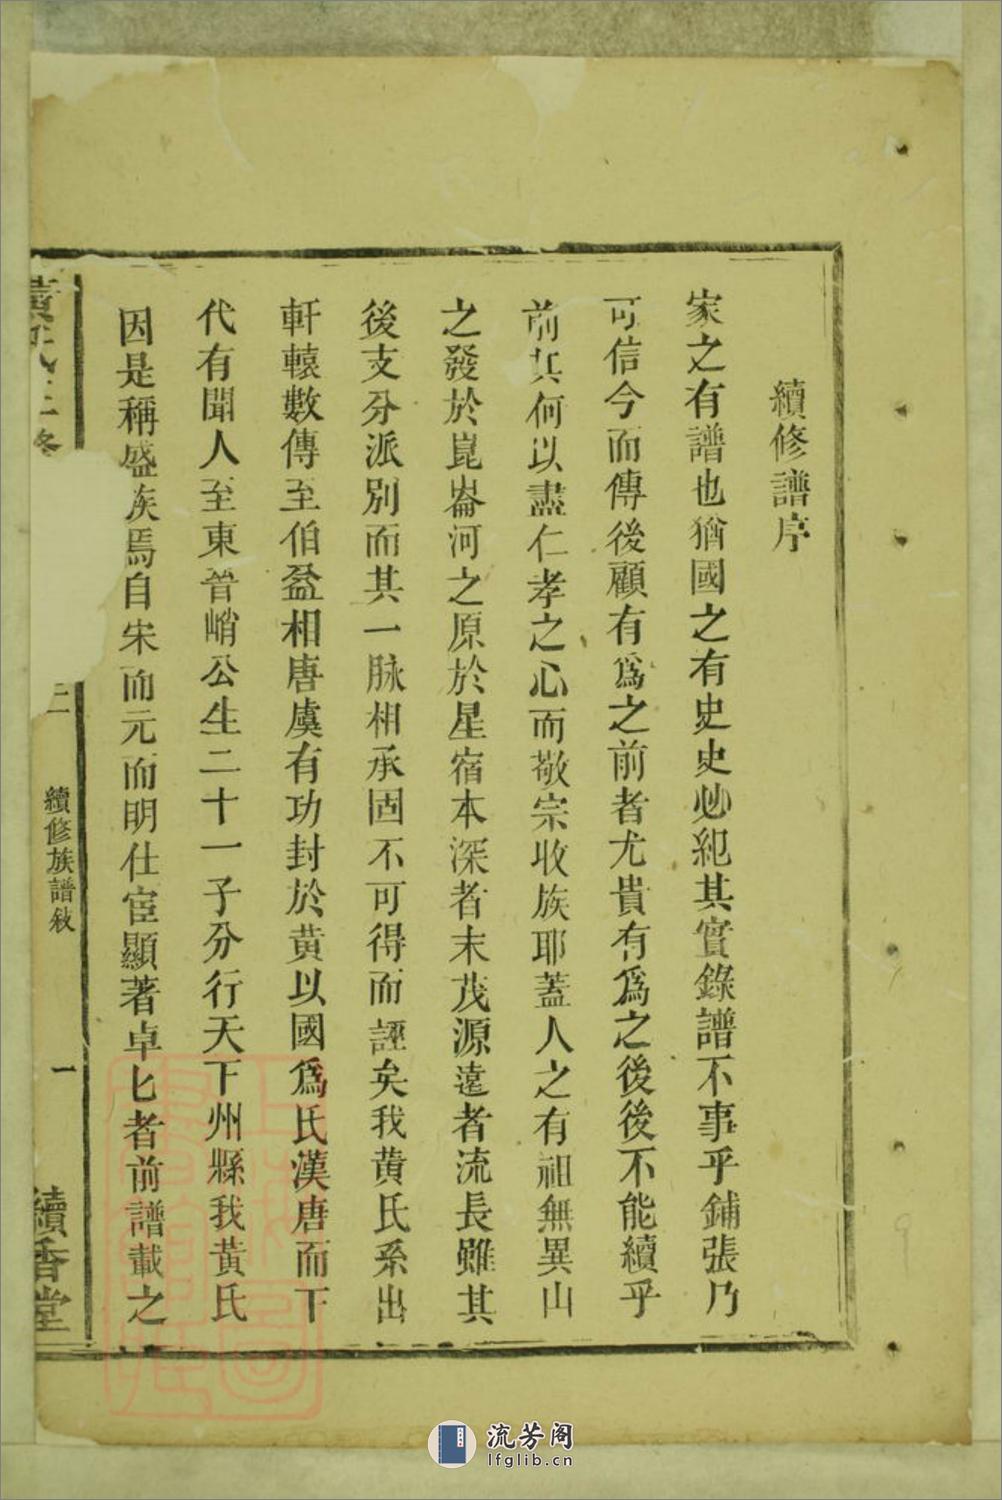 續修譜序
家之有譜也猶國之有史史必紀其實錄譜不事乎鋪張乃
可信今而傳後顧有爲之前者尤貴有爲之後後不能續乎
前其何以盡仁孝之心而敬宗收族耶蓋人之有祖無異山
之發於崑崙河之原於星宿本深者末茂源遠者流長雖其
後支分派別而其一脉相承固不可得而誣矣我黄氏系出
軒轅數傳至伯益相唐虞有功封於黄以國爲氏漢唐而下
代有聞人至東晉峭公生二十一子分行天下州縣我黄氏
因是稱盛族焉自宋而元而明仕宦顯著卓匕者前譜載之
黄氏三修
續修族譜敘
一
續香堂
流芳阁
lfglib.cn